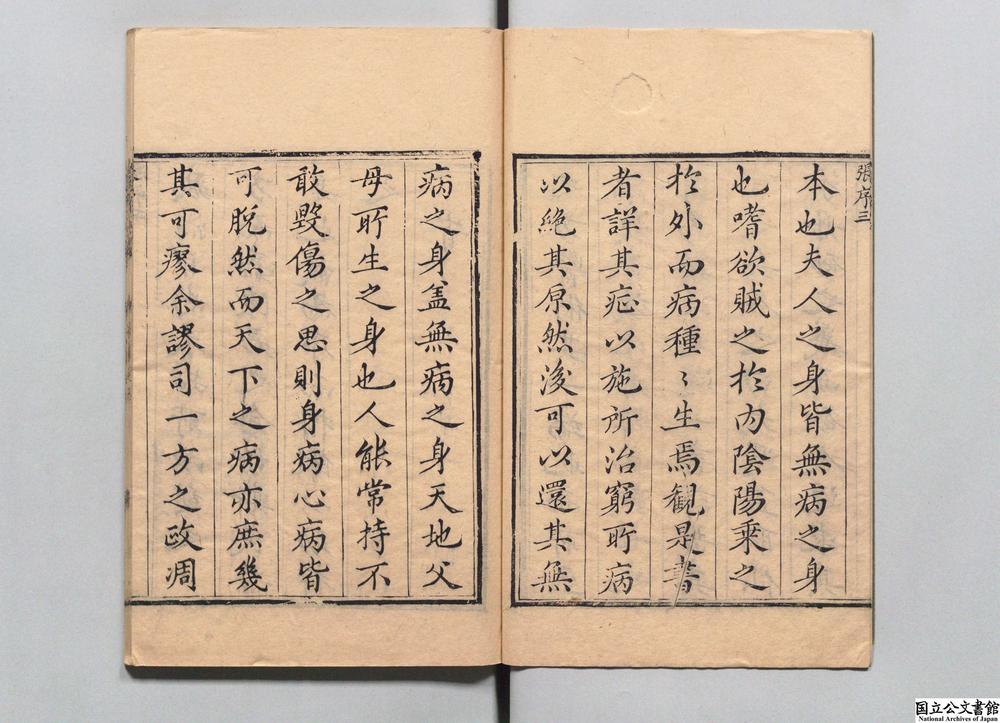 張序三
本也夫人之身皆無病之身
也嗜欲賊之扵内陰陽乘之
扵外而病種〻生焉観是書
者詳其症以施所治窮所病
以絶其原然後可以還其無
病之身盖無病之身天地父
母所生之身也人能常持不
敢毀傷之思則身病心病皆
可脫然而天下之病亦庶幾
其可瘳余謬司一方之政凋
国立公文書館
National Archives of Japan